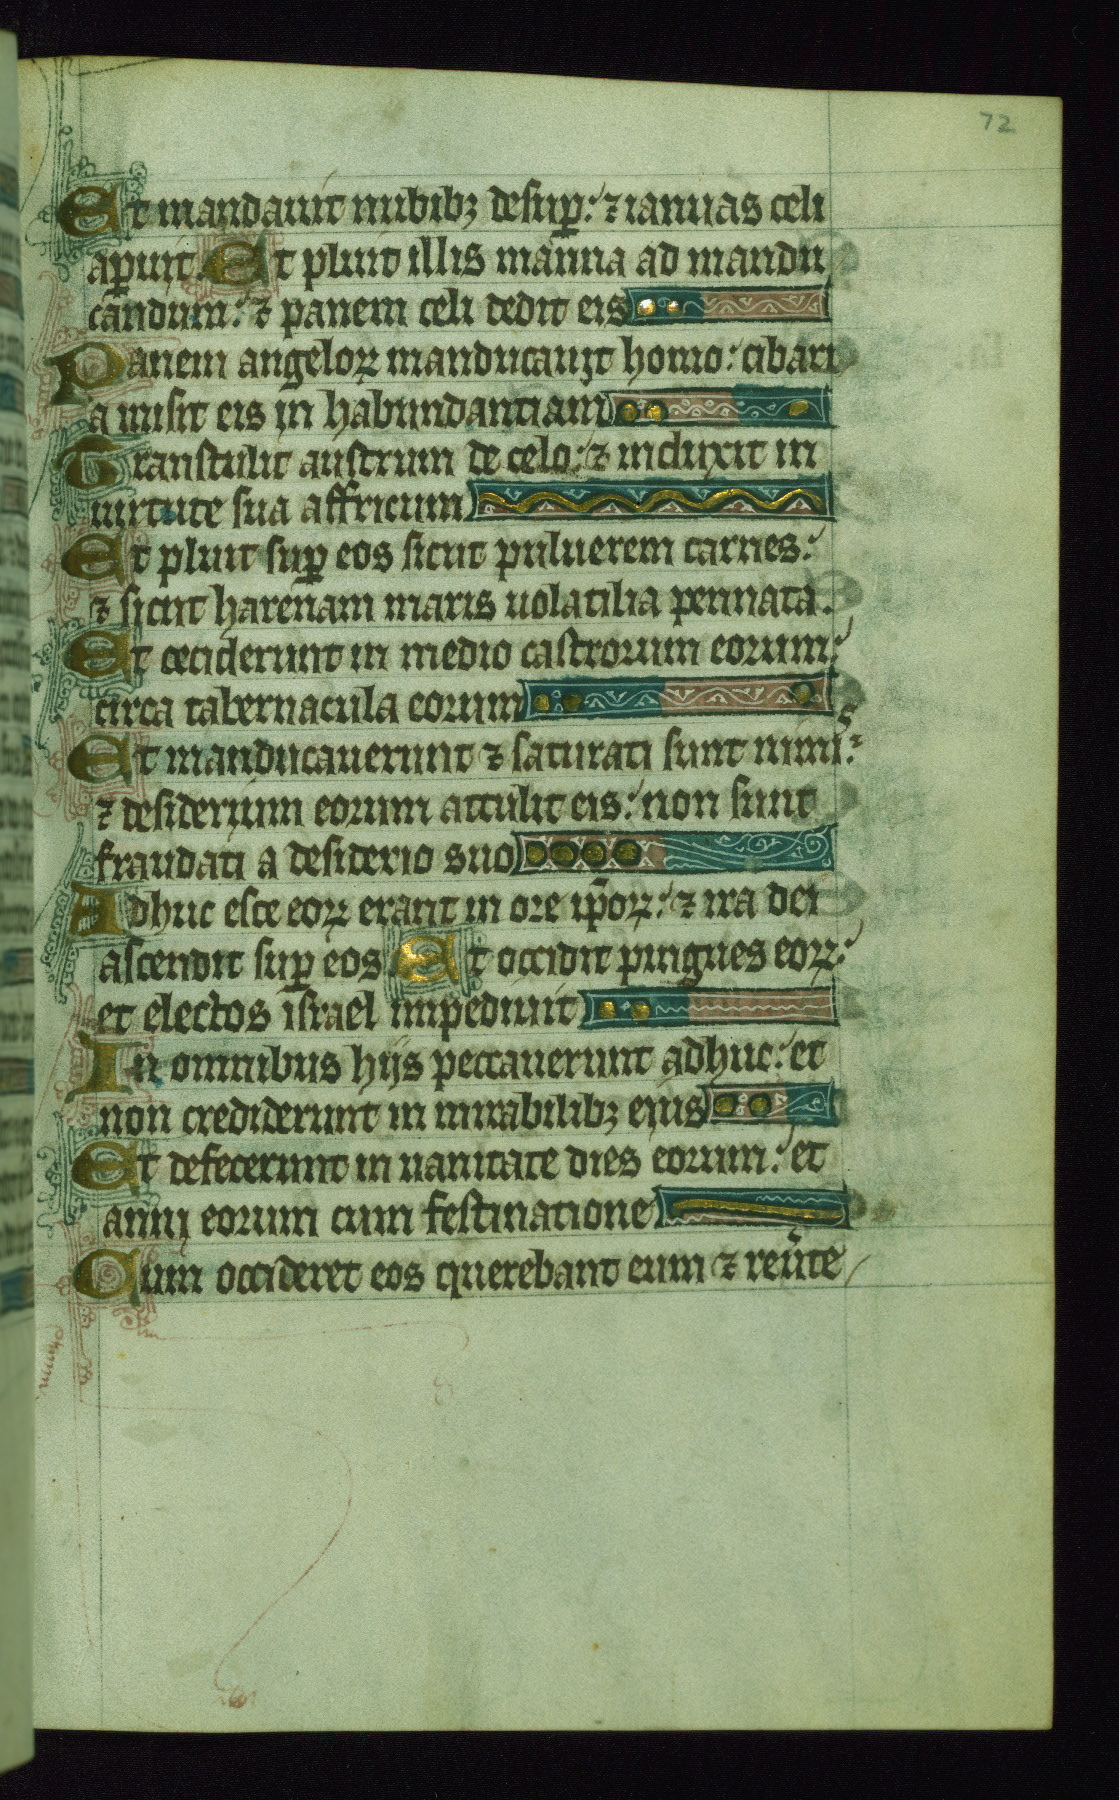 72
Et mandauit nubibꝫ desuꝑ: ⁊ ianuas celi
aꝑuit. Et pluit illis manna ad mandu
candum: ⁊ panem celi dedit eis
Panem angeloꝝ manducauit homo: cibari
a misit eis in habundantiam
Transtulit austrum de celo: ⁊ induxit in
uirtute sua affricum
Et pluit suꝑ eos sicut puluerem carnes:
⁊ sicut harenam maris uolatilia pennata.
Et ceciderunt in medio castrorum eorum:
circa tabernacula eorum
Et manducauerunt ⁊ saturati sunt nimis:
⁊ desiderium eorum attulit eis: non sunt
fraudati a desiderio suo
Adhuc esce eoꝝ erant in ore ip̄oꝝ: ⁊ ira dei
ascendit suꝑ eos. Et occidit pingues eoꝝ:
et electos israel impediuit
In omnibus hijs peccauerunt adhuc: et
non crediderunt in mirabilibꝫ eius
Et defecerunt in uanitate dies eorum: et
anni eorum cum festinatione
Cum occideret eos querebant eum ⁊ reūte